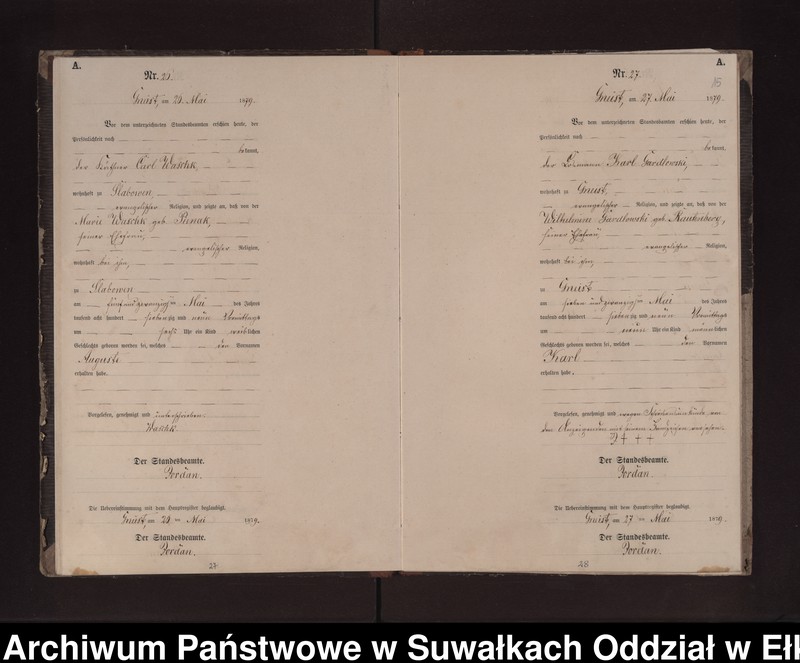 A.
Nr. 25.
Gneist, am 25. Mai 1879.
Vor dem unterzeichneten Standesbeamten erschien heute, der
Persönlichkeit nach
bekannt,
der Käthner Carl
wohnhaft zu Slabowen
evangelischer Religion, und zeigte an, daß von der
Marie geb.
seiner Ehefrau,
evangelischer Religion,
wohnhaft bei ihm,
zu Slabowen
am fünf und zwanzigsten Mai des Jahres
tausend acht hundert siebenzig und neun Vormittags
um sechs Uhr ein Kind weiblichen
Geschlechts geboren worden sei, welches den Vornamen
Auguste
erhalten habe.
Vorgelesen, genehmigt und unterschrieben.
Der Standesbeamte.
Jordan.
Die Uebereinstimmung mit dem Hauptregister beglaubigt
Gneist, am 25 ten Mai 1879.
Der Standesbeamte.
Jordan.
27
A.
Nr. 27.
Gneist, am 27. Mai 1879.
Vor dem unterzeichneten Standesbeamten erschien heute, der
Persönlichkeit nach
bekannt,
der Losmann Karl Gawdlowski,
wohnhaft zu Gneist,
evangelischer Religion, und zeigte an, daß von der
Wilhelmine Gawdlowski geb.
seiner Ehefrau,
evangelischer Religion,
wohnhaft bei ihm,
zu Gneist
am sieben und zwanzigsten Mai des Jahres
tausend acht hundert siebenzig und neun Vormittags
um neun Uhr ein Kind männlichen
Geschlechts geboren worden sei, welches den Vornamen
Karl
erhalten habe.
Vorgelesen, genehmigt und wegen Schreibensunkunde von
dem Anzeigenden mit seinem Handzeichen versehen.
+ + +
Der Standesbeamte.
Jordan.
Die Uebereinstimmung mit dem Hauptregister beglaubigt
Gneist, am 27 ten Mai 1879.
Der Standesbeamte.
Jordan.
28
Archiwum Państwowe w Suwałkach Oddział w Ełk